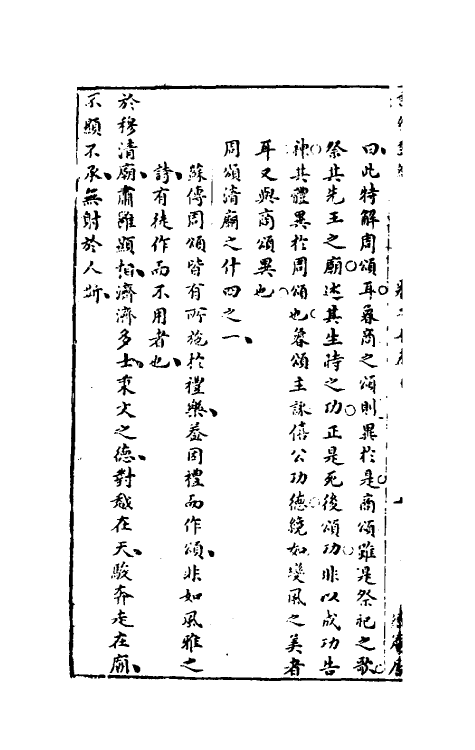 曰此特解周頌耳魯商之頌則異於是商頌雖是祭祀之歌
祭其先王之廟述其生時之功正是死後頌功非以成功告
神其體異於周頌也魯頌主詠僖公功德纔如變風之美者
耳又與商頌異也
周頌清廟之什四之一
蘇傳周頌皆有所施於禮樂蓋因禮而作頌非如風雅之
詩有徒作而不用者也
於穆清廟肅雝顯相濟濟多士秉文之德對越在天駿奔走在廟
不顯不承無射於人斯